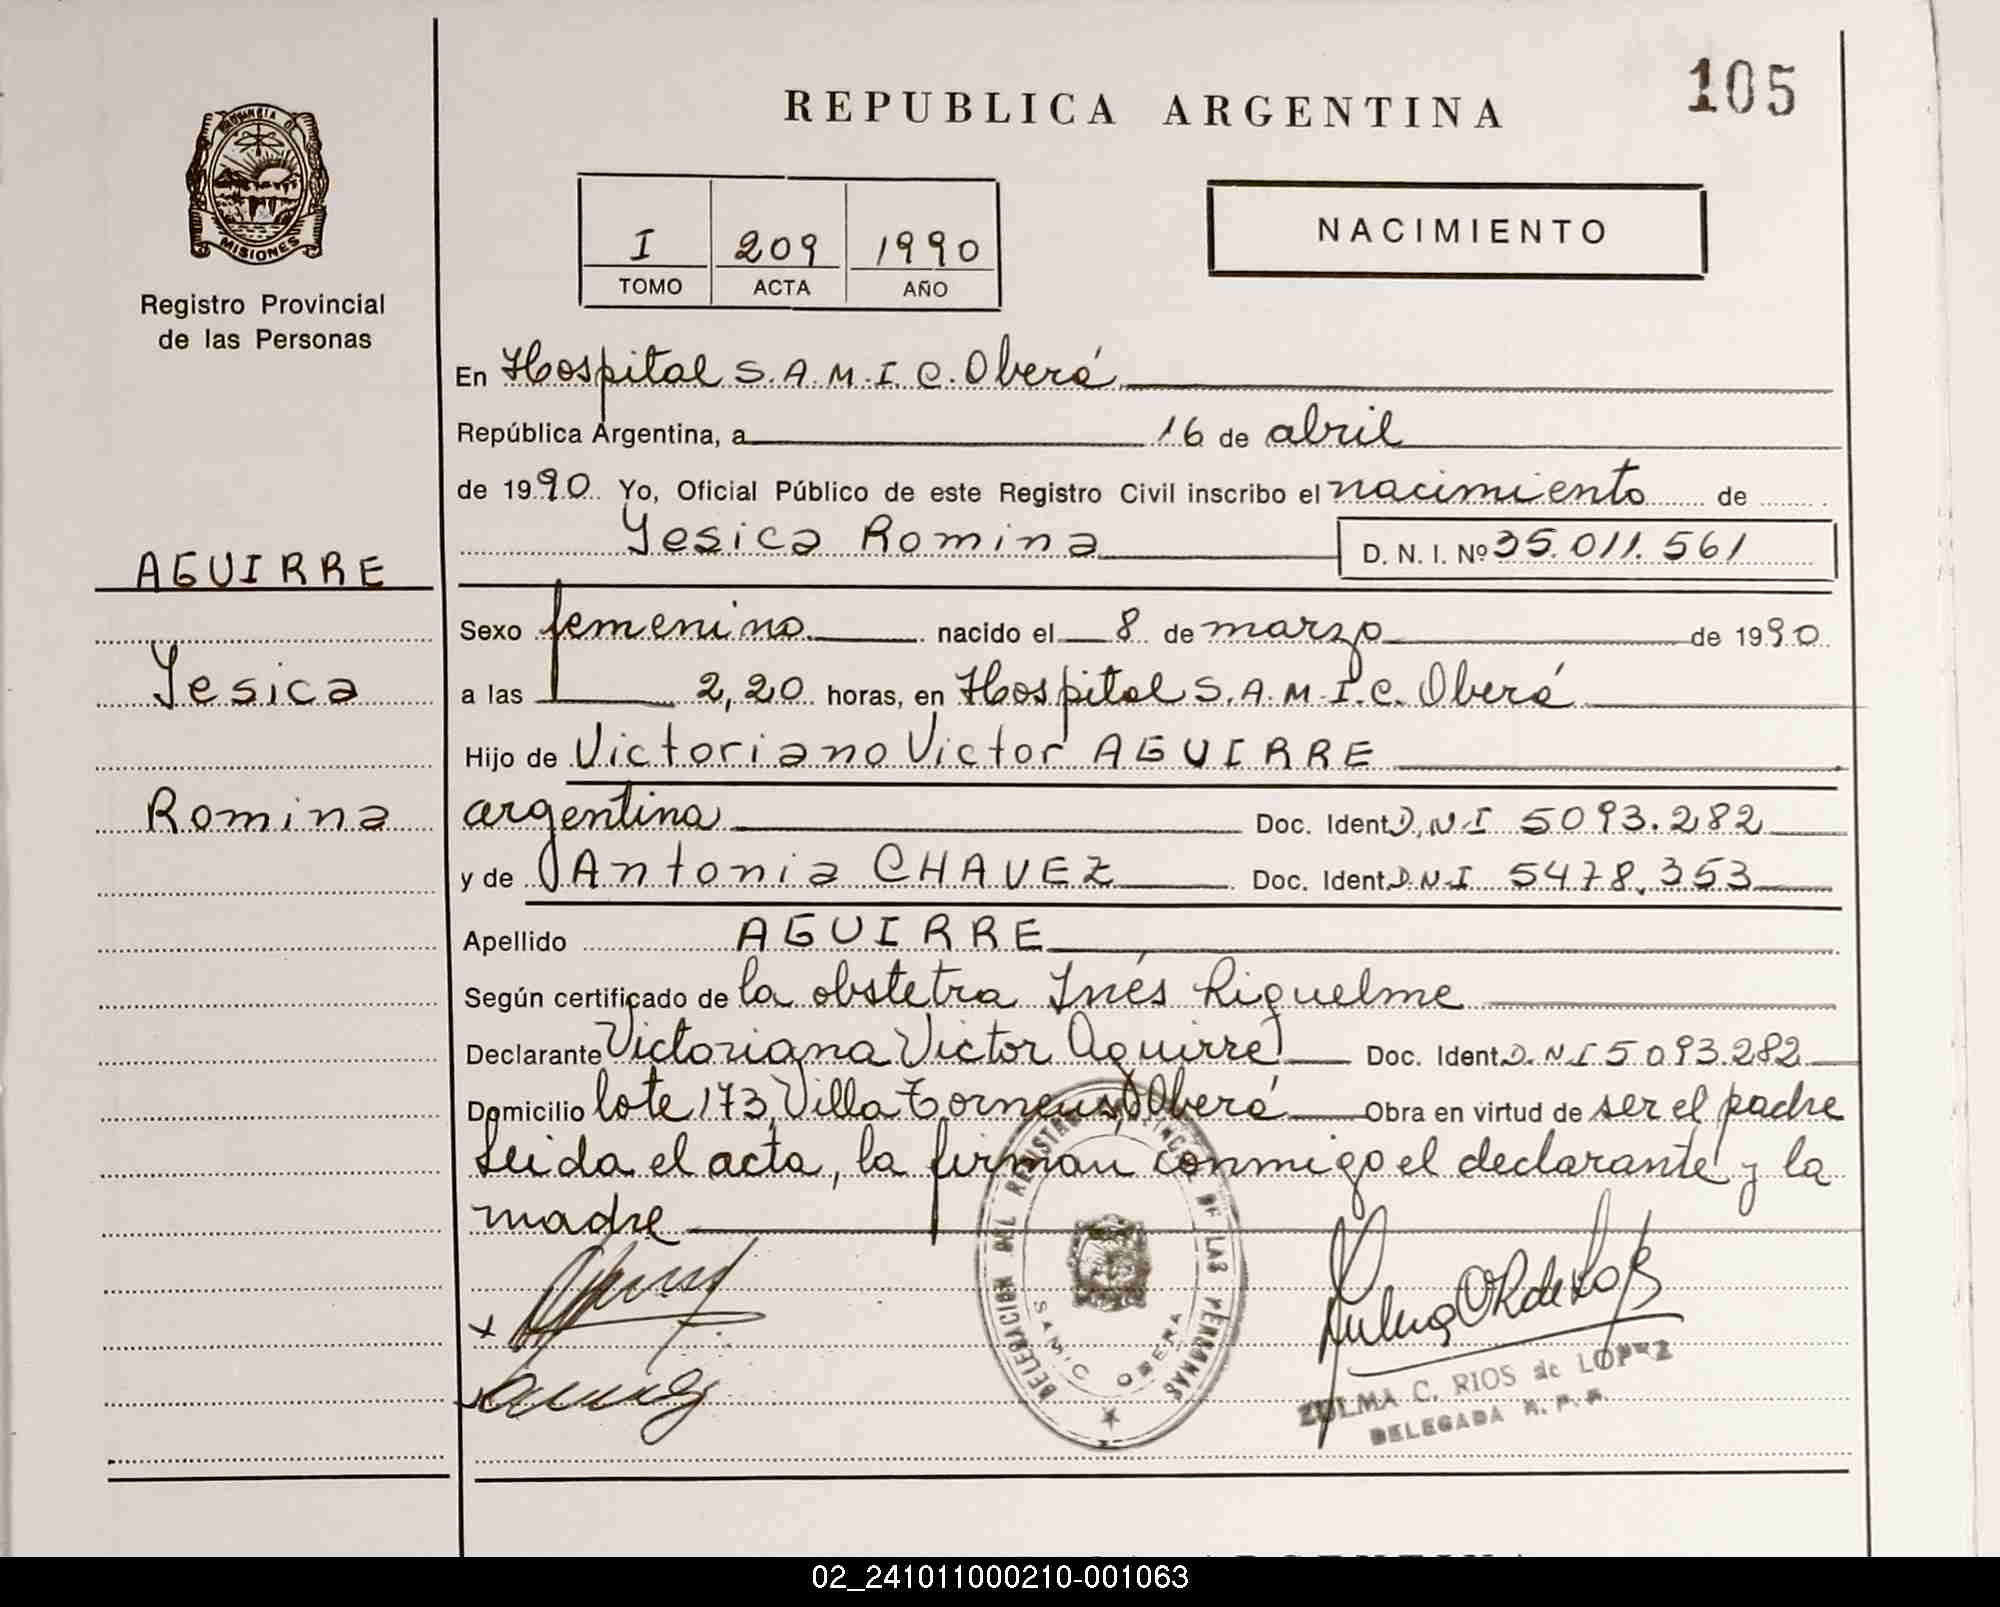 105
REPUBLICA ARGENTINA
PROVINCIA DE
MISIONES
Registro Provincial
de las Personas
I 209 1990
TOMO ACTA AÑO
NACIMIENTO
En Hospital S.A.M.I.C. Oberá
República Argentina, a 16 de abril
de 1990 Yo, Oficial Público de este Registro Civil inscribo el nacimiento de
Yesica Romina D. N. I. Nº 35.011.561
AGUIRRE
Yesica
Romina
Sexo femenino nacido el 8 de marzo de 1990
a las 2,20 horas, en Hospital S.A.M.I.C. Oberá
Hijo de Victoriano Victor AGUIRRE
argentina Doc. Ident. D.N.I 5093.282
y de Antonia CHAVEZ Doc. Ident. D.N.I 5478.353
Apellido AGUIRRE
Según certificado de la obstetra Inés Riquelme
Declarante Victoriana Victor Aguirre Doc. Ident. D.N.I 5093.282
Domicilio lote 173, Villa Torneus, Oberá Obra en virtud de ser el padre
Leida el acta, la firman conmigo el declarante y la
madre
DELEGACION DEL REGISTRO PROVINCIAL DE LAS PERSONAS
SAMIC OBERA
ZULMA C. RIOS de LOPEZ
DELEGADA R. P. P.
02_241011000210-001063